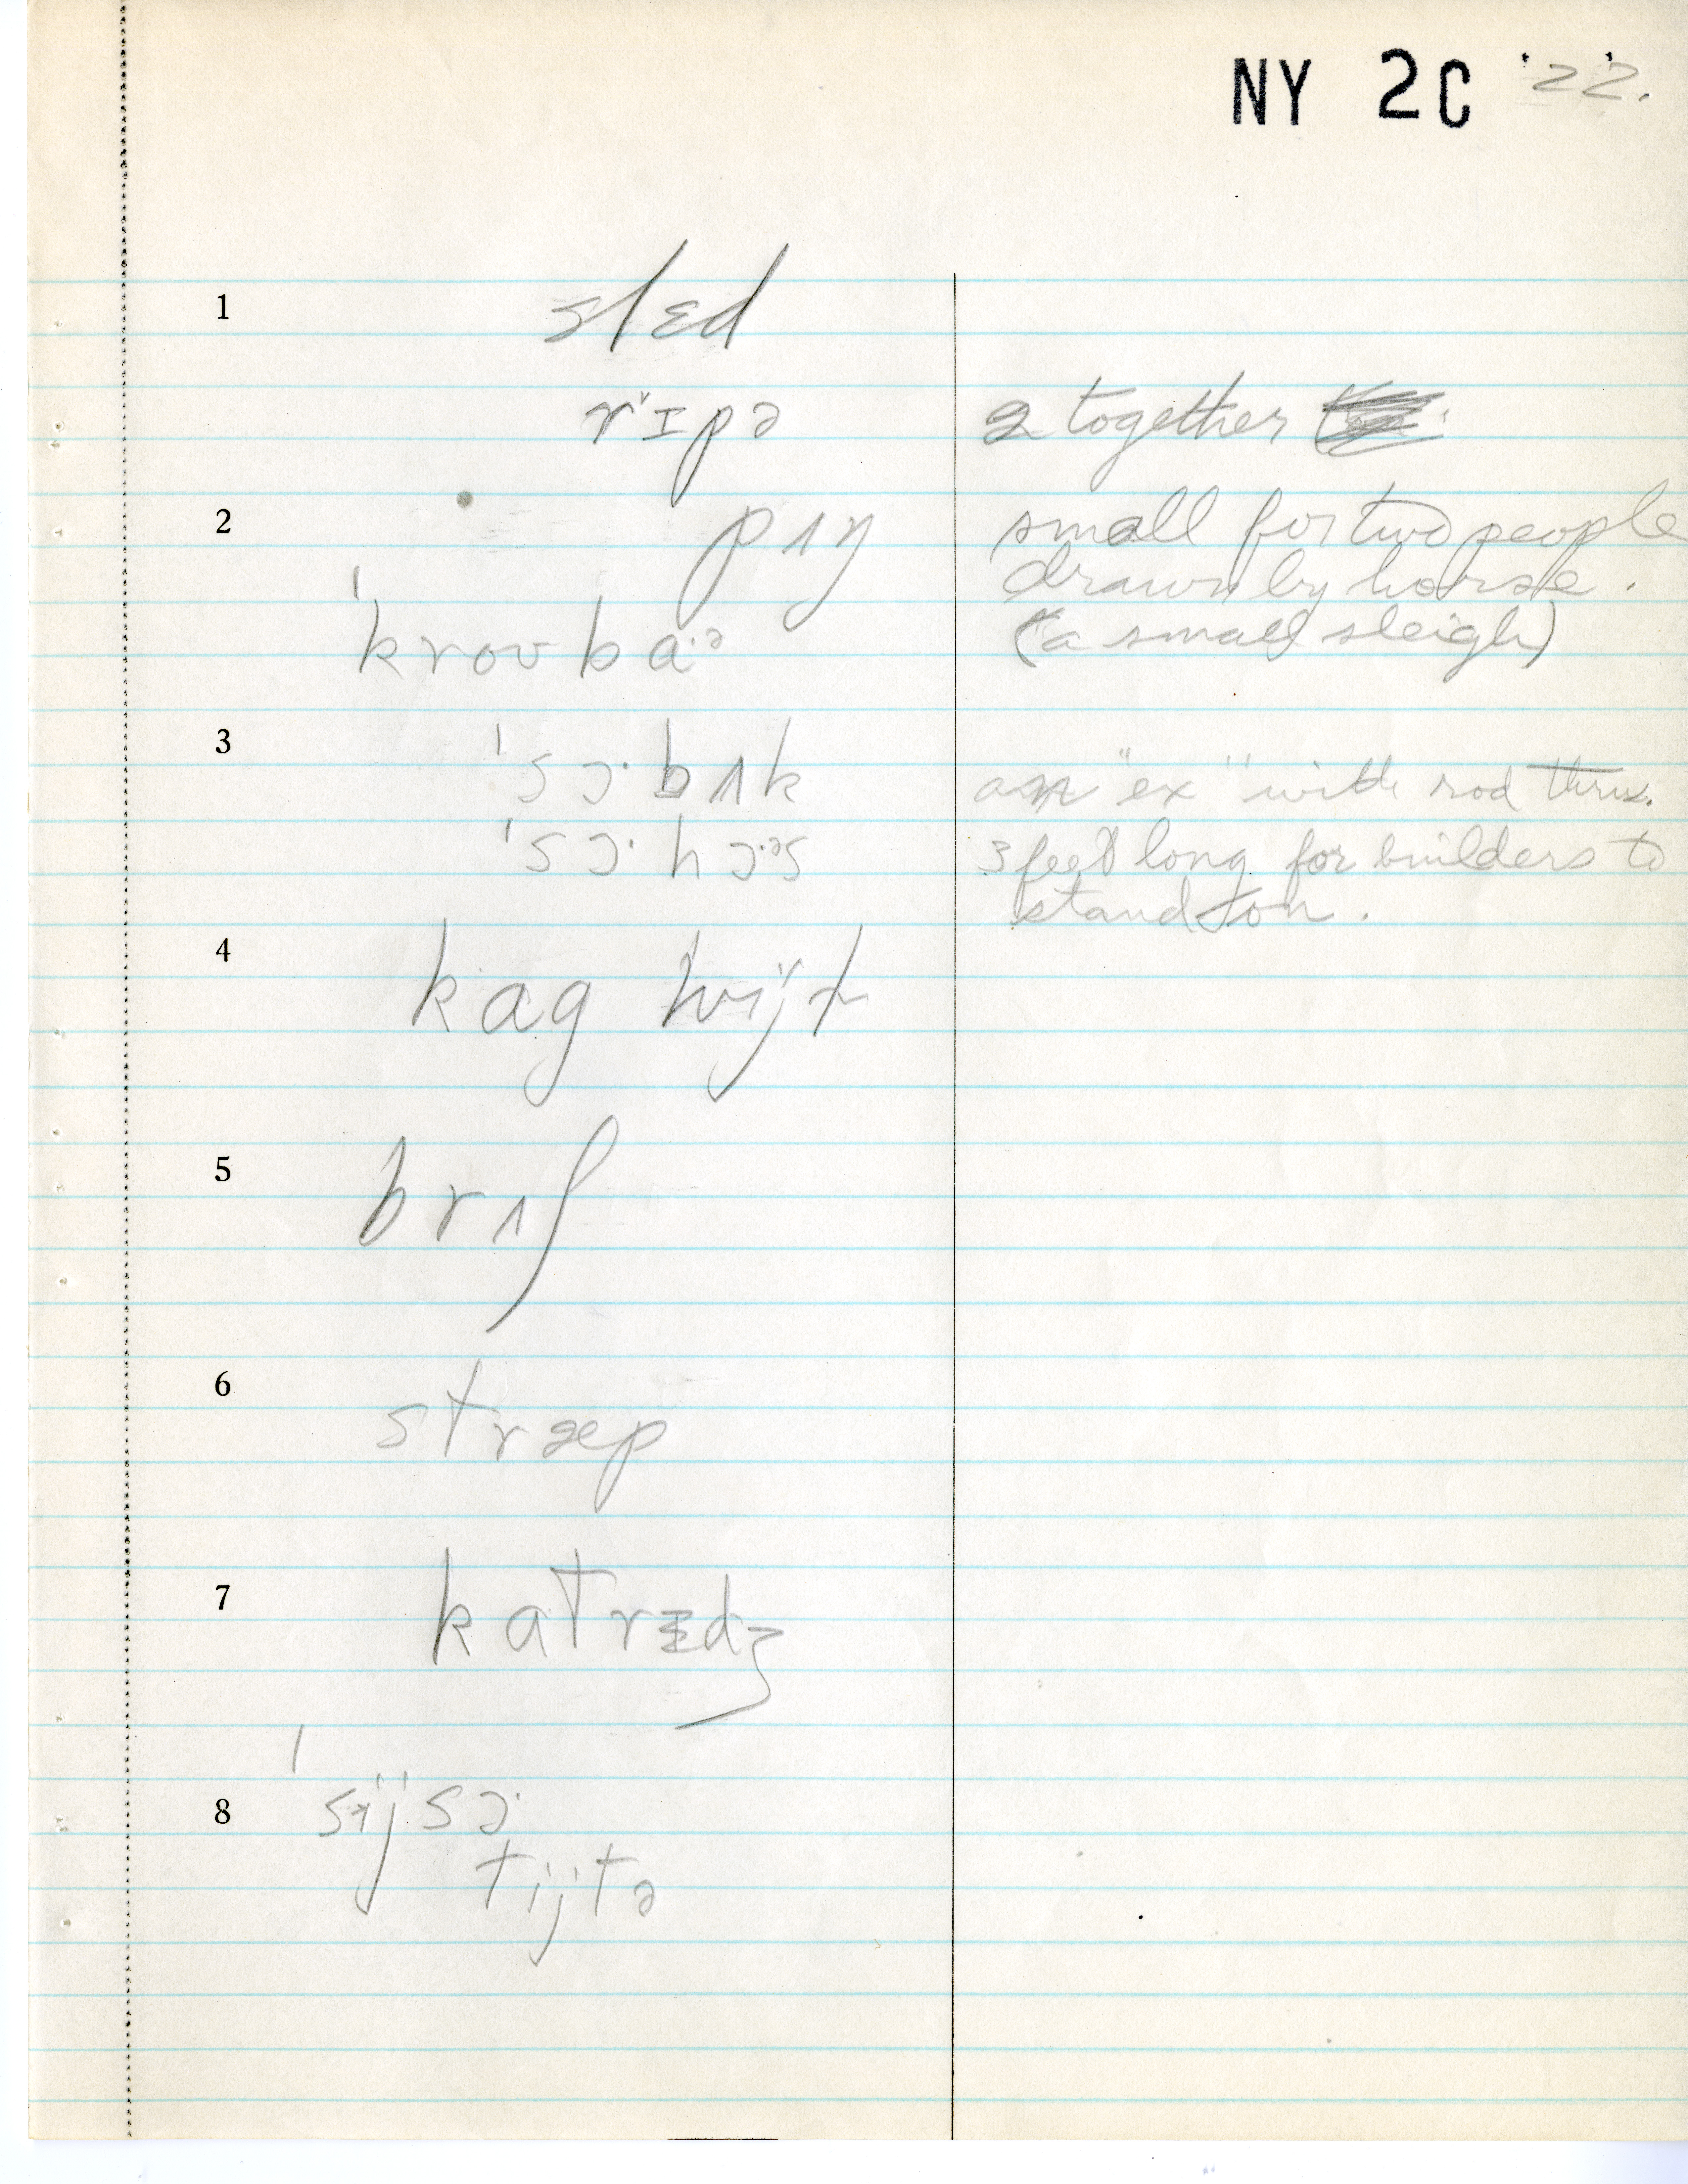 NY 2C '22.
1 slɛd
rɪpə 2 together
2 pʌŋ small for two people
drawn by horse.
ˈkroʊbaˑᵊ (a small sleigh)
3 ˈsɔˑbʌk an "ex" with rod thru.
ˈsɔˑhɔˑᵊs 3 feet long for builders to
stand on.
4 kag hwijt
5 brʌʃ
6 stræp
7 katrɪdʒ
8 ˈsijsɔˑ
tijtə